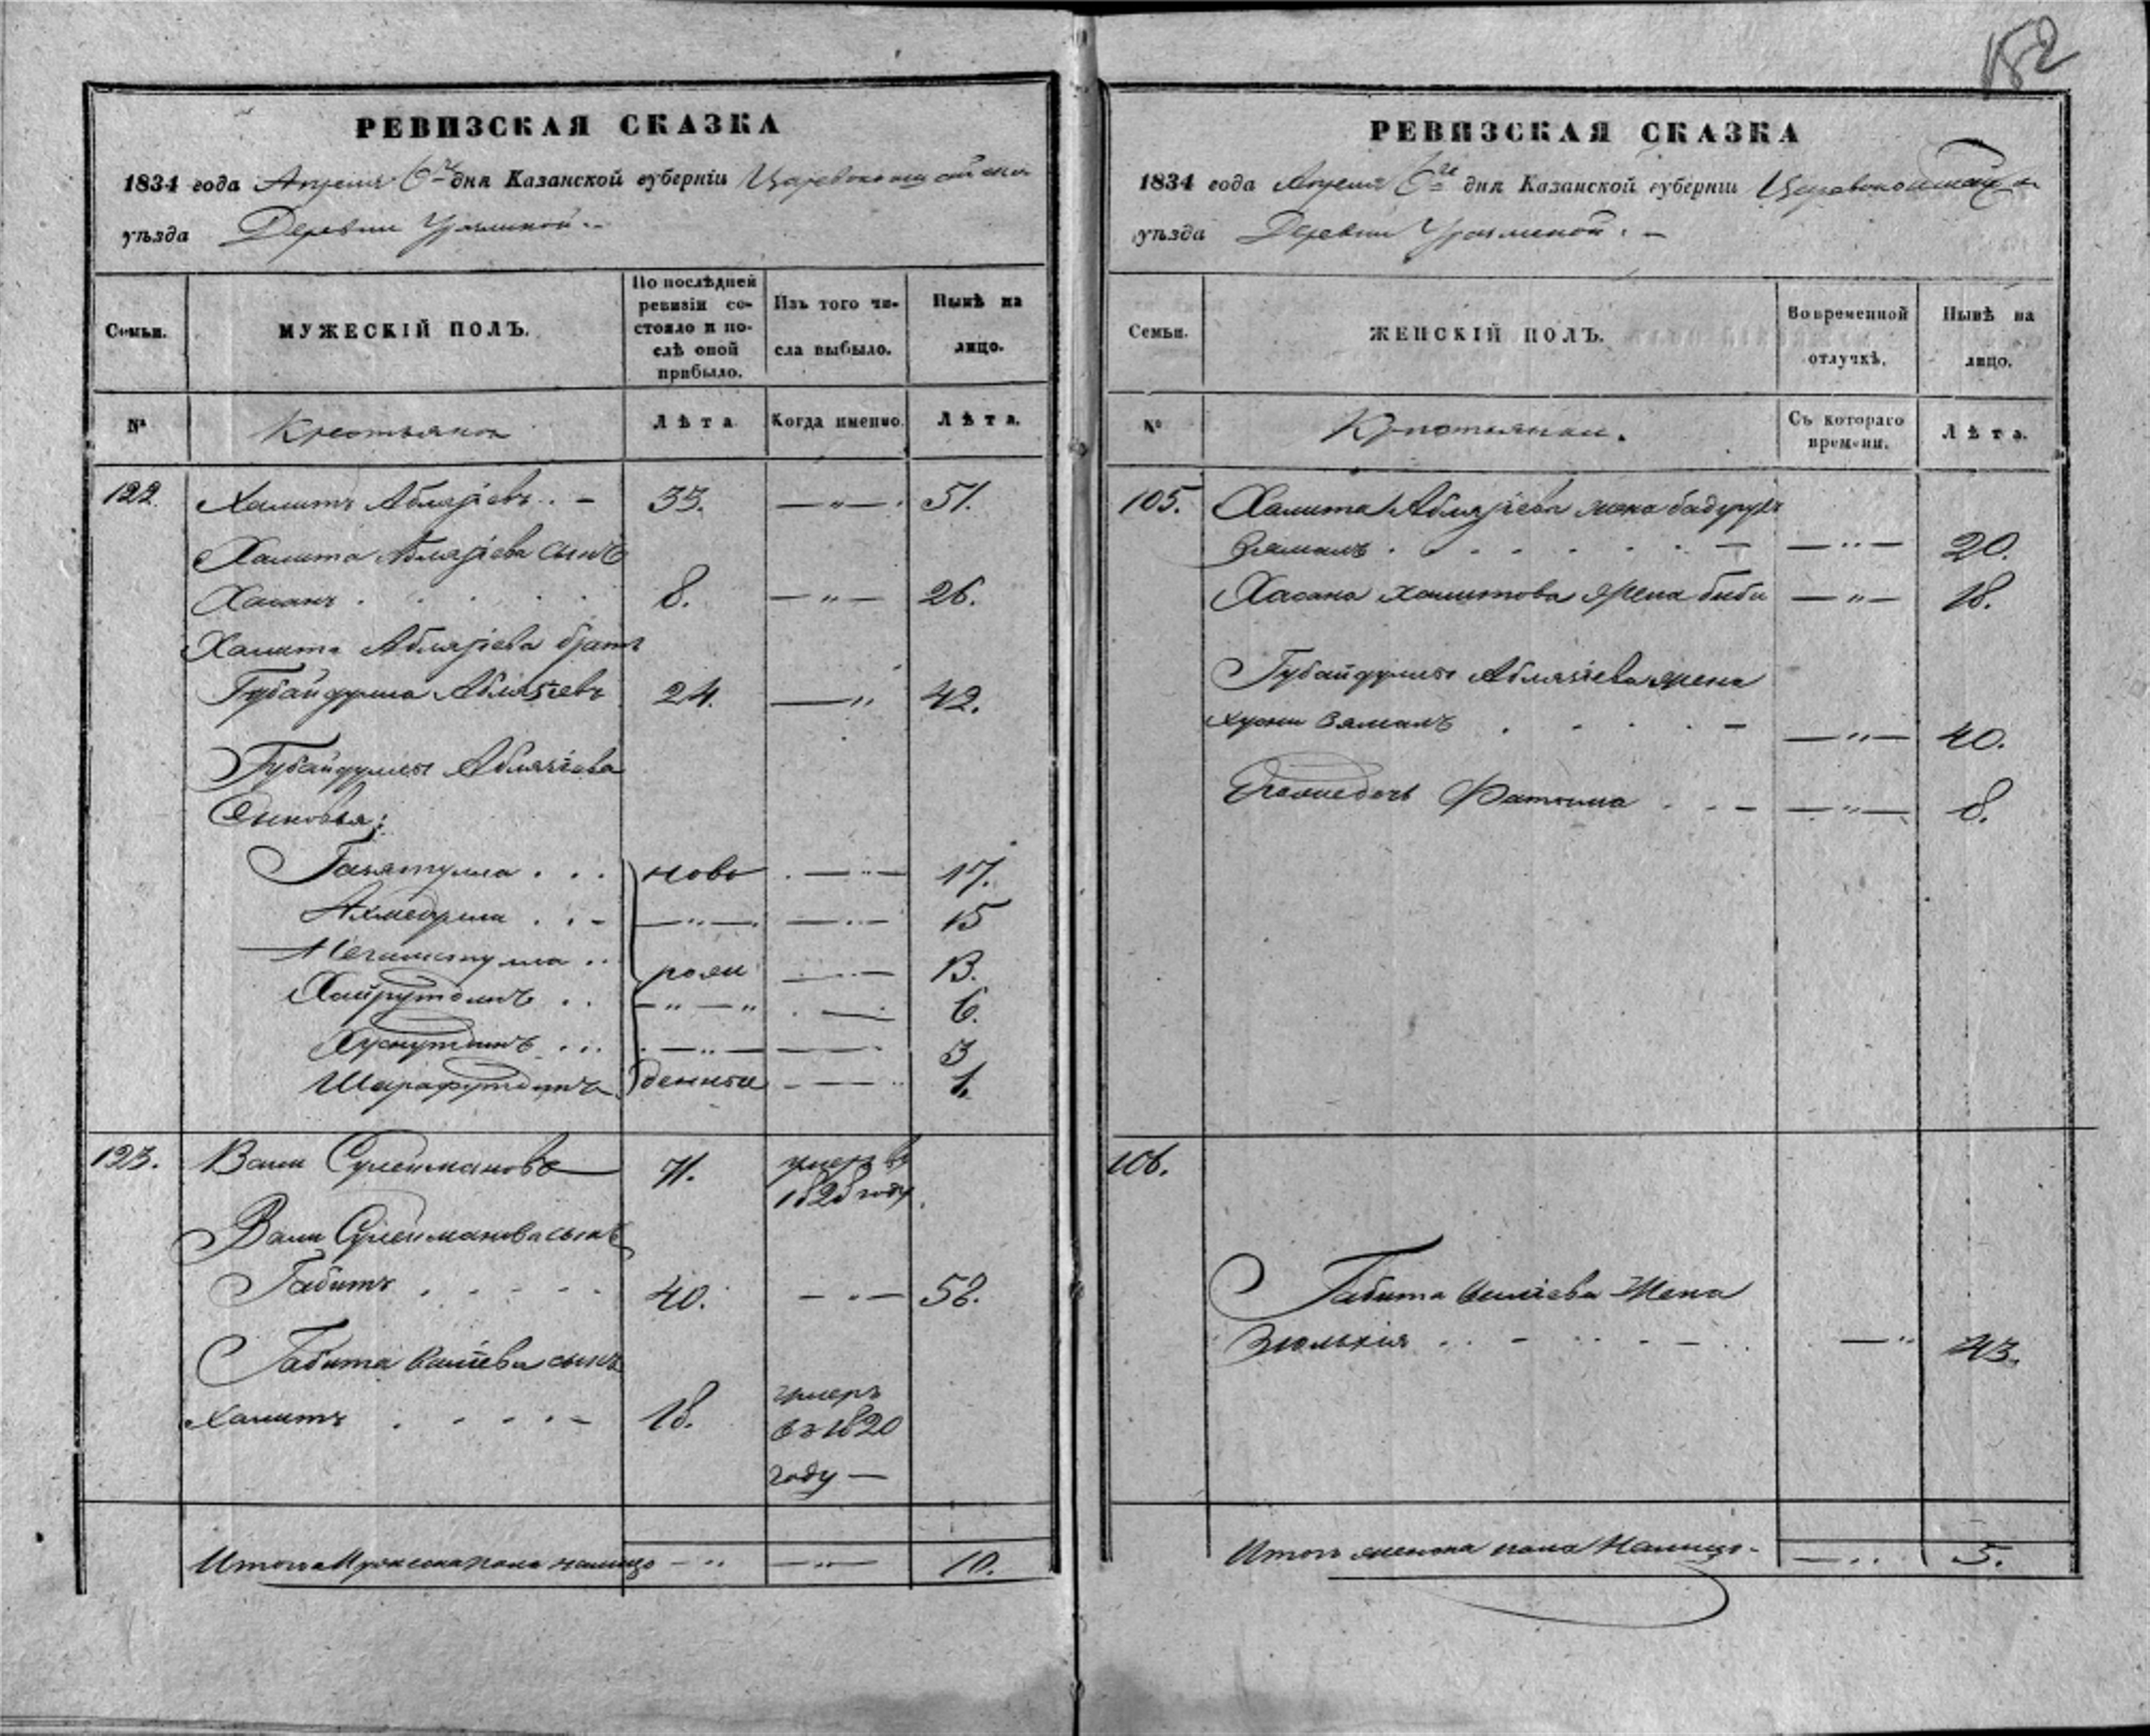 152
РЕВИЗСКАЯ СКАЗКА
1834 года Апреля 6го дня Казанской губерніи Царевококшайскаго
уѣзда Деревни Уразлиной
Семьи.
МУЖЕСКІЙ ПОЛЪ.
По послѣдней ревизіи состояло и послѣ оной прибыло.
Изъ того числа выбыло.
Нынѣ на лицо.
№
Крестьяне
Лѣта.
Когда именно.
Лѣта.
122. Халитъ Аблязіевъ 33. 51.
Халита Аблязіева сынъ
Хасанъ 8. 26.
Халита Аблязіева братъ
Губайдулла Аблязіевъ 24. 42.
Губайдуллы Аблязіева
Сыновья:
ново 17.
15
рож 13.
Хайрутдинъ 6.
Хуснутдинъ 3
Шарафутдинъ денныи 1.
123. Вали Сулеймановъ 71. умеръ въ
1828 году
Вали Сулейманова сынъ
Габитъ 40. 58.
Габита Валіева сынъ
Халитъ 18. умеръ
въ 1820
году
Итого Мужеска пола налицо 10.
РЕВИЗСКАЯ СКАЗКА
1834 года Апреля 6го дня Казанской губерніи Царевококшайска
уѣзда Деревни Уразлиной
Семьи.
ЖЕНСКІЙ ПОЛЪ.
Во временной отлучкѣ.
Нынѣ на лицо.
№
Крестьянки.
Съ котораго времени.
Лѣта.
105. Халита Аблязіева жена
20.
Хасана Халитова жена биби 18.
Губайдуллы Аблязіева жена
хусни 40.
Фатима 8.
106.
Габита Валіева Жена
43.
Итого женска пола Налицо 5.